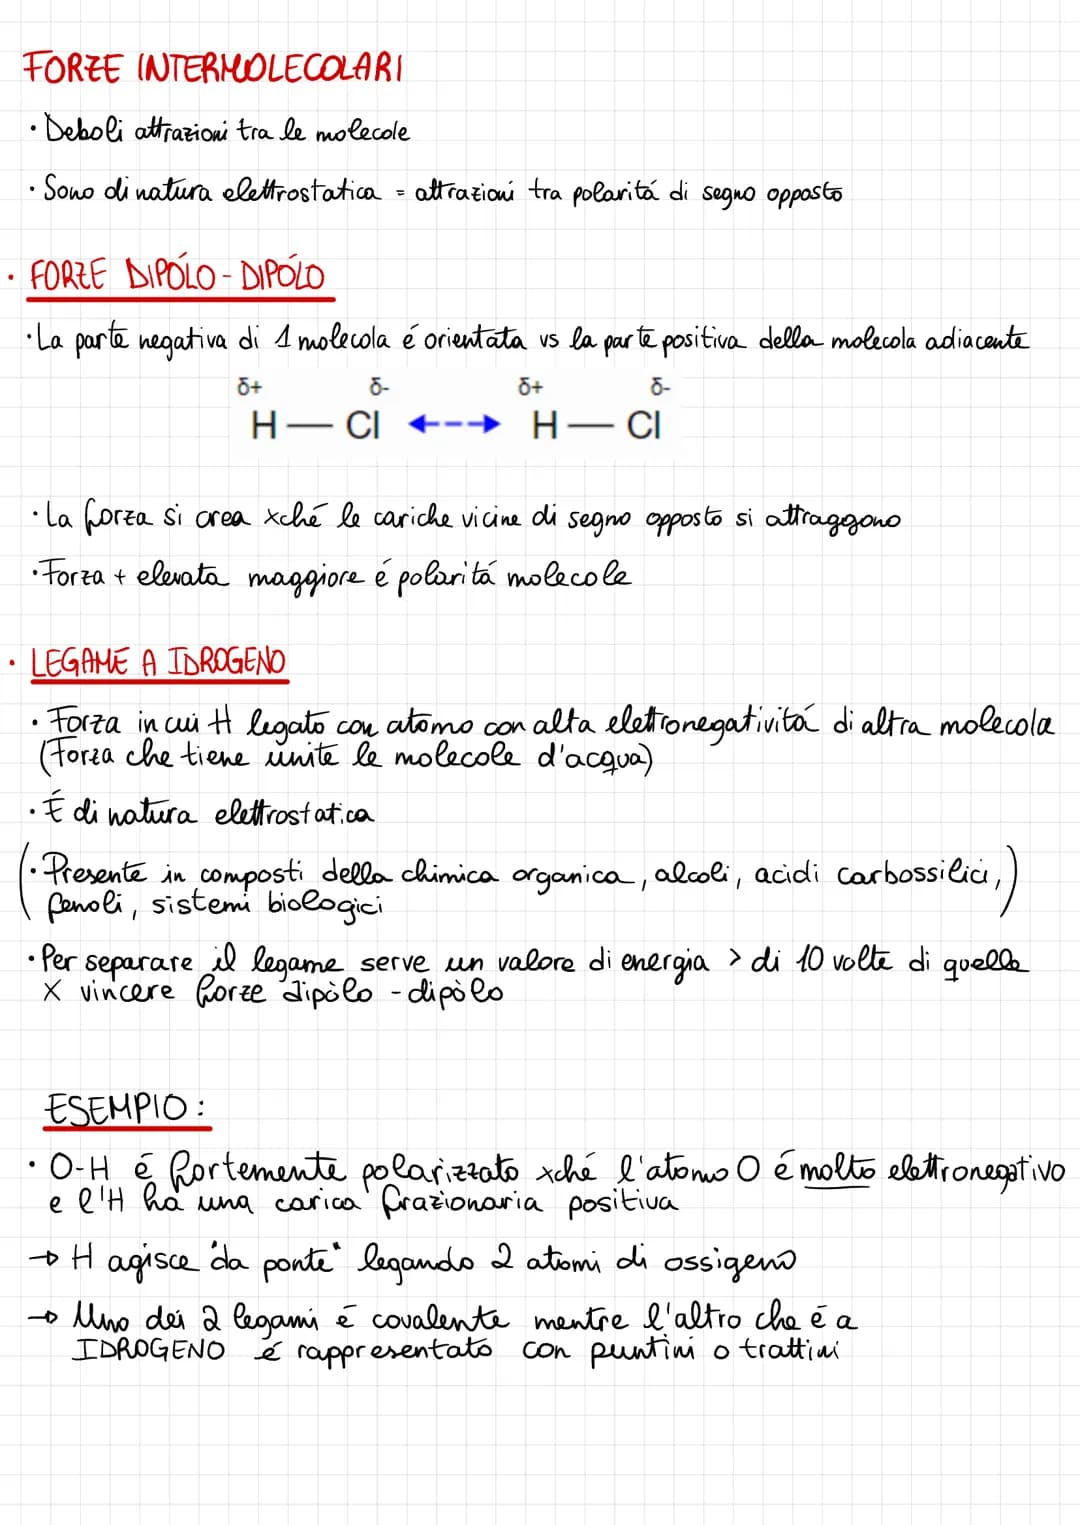 FORZE INTERMOLECOLARI
• Deboli attrazioni tra le molecole
• Sono di natura elettrostatica = attrazioni tra polaritá di segno opposto
• FORZE DIPÓLO - DIPÓLO
• La parte negativa di 1 molecola é orientata vs la parte positiva della molecola adiacente
δ+ δ- δ+ δ-
H — Cl ◄--► H — Cl
• La forza si crea xché le cariche vicine di segno opposto si attraggono
• Forza + elevata maggiore é polaritá molecole
• LEGAME A IDROGENO
• Forza in cui H legato con atomo con alta elettronegativitá di altra molecola
(Forza che tiene unite le molecole d'acqua)
• É di natura elettrostatica
(• Presente in composti della chimica organica, alcoli, acidi carbossilici,)
fenoli, sistemi biologici
• Per separare il legame serve un valore di energia > di 10 volte di quella
X vincere forze dipòlo - dipòlo
ESEMPIO:
• O-H é fortemente polarizzato xché l'atomo O é molto elettronegativo
e l'H ha una carica frazionaria positiva
→ H agisce "da ponte" legando 2 atomi di ossigeno
→ Uno dei 2 legami é covalente mentre l'altro che é a
IDROGENO é rappresentato con puntini o trattini